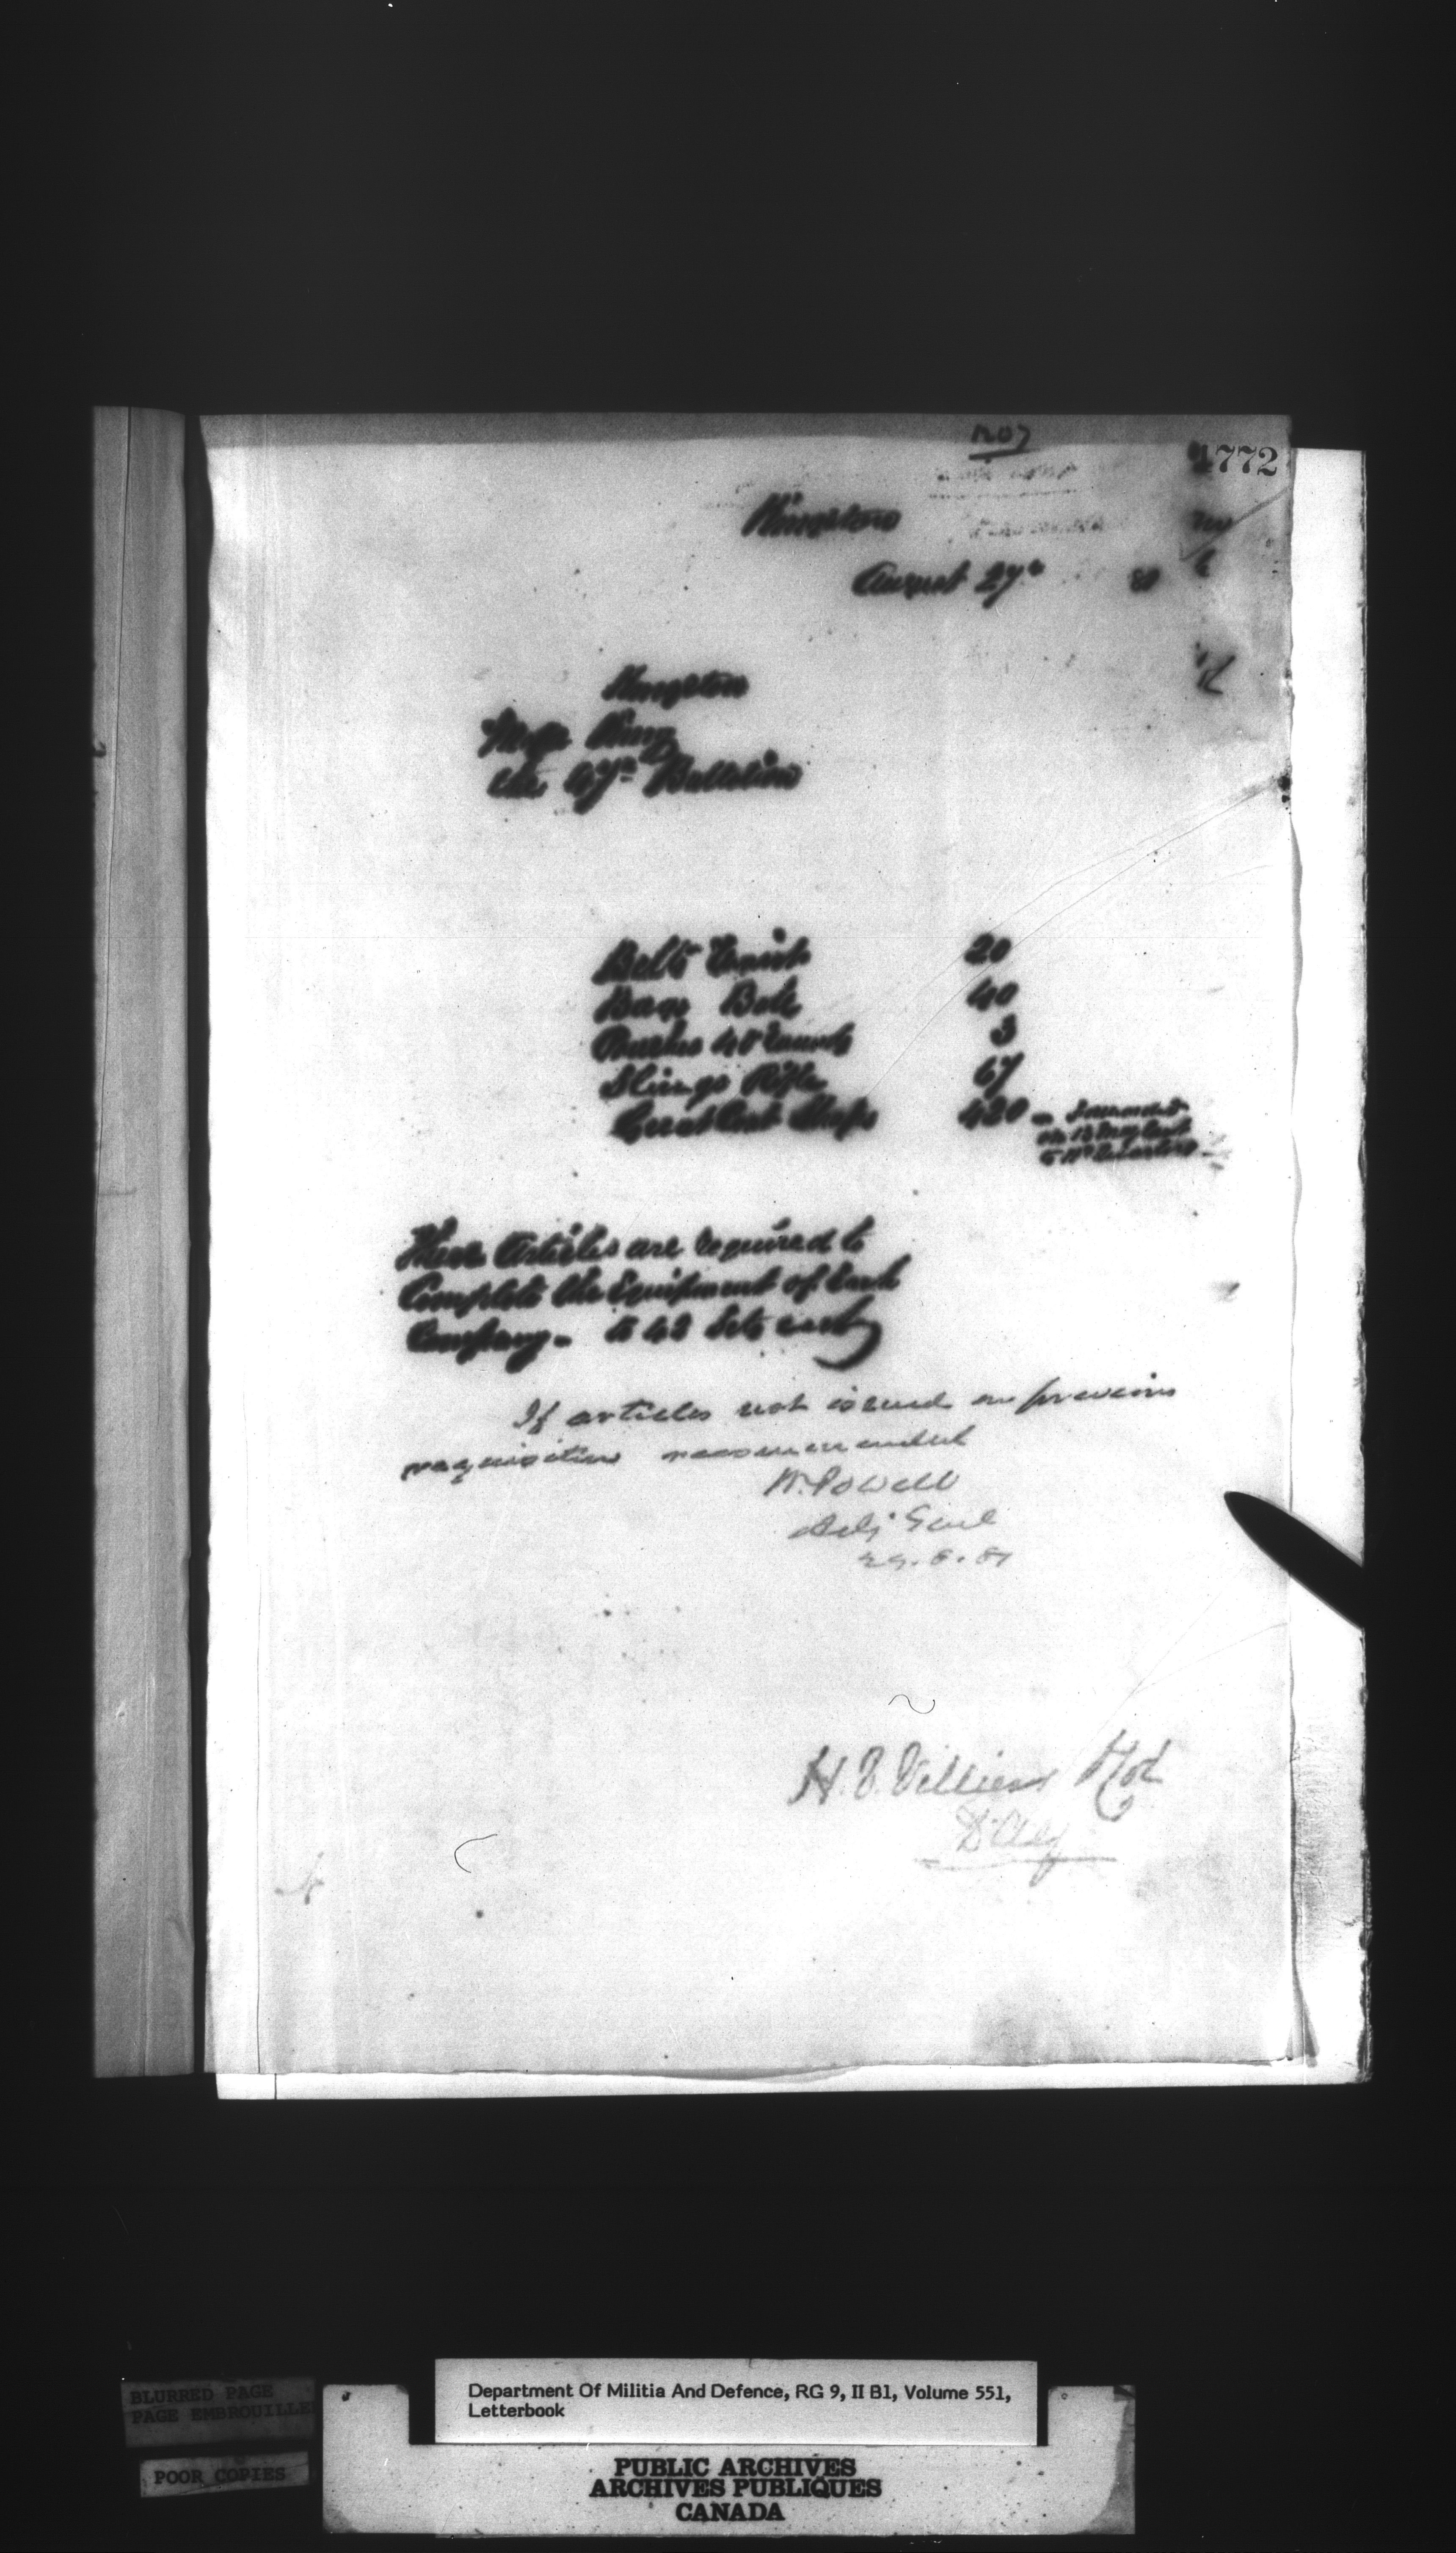 1207
1772
Kingston
August 27th 80
Kingston
the 47th Battalion
Belts Waist 20
Bags Ball 40
Pouches 40 rounds 3
Slings Rifle 67
Great Coat Straps 420 -
to Hd Quarters -
These Articles are required to
Complete the Equipment of Each
Company - to 42 Sets each
If articles not issued on previous
requisition recommended
W. Powell
Adj Genl
H. V. Villiers Lt Col
D.A.G.
BLURRED PAGE
PAGE EMBROUILLEE
POOR COPIES
Department Of Militia And Defence, RG 9, II B1, Volume 551,
Letterbook
PUBLIC ARCHIVES
ARCHIVES PUBLIQUES
CANADA